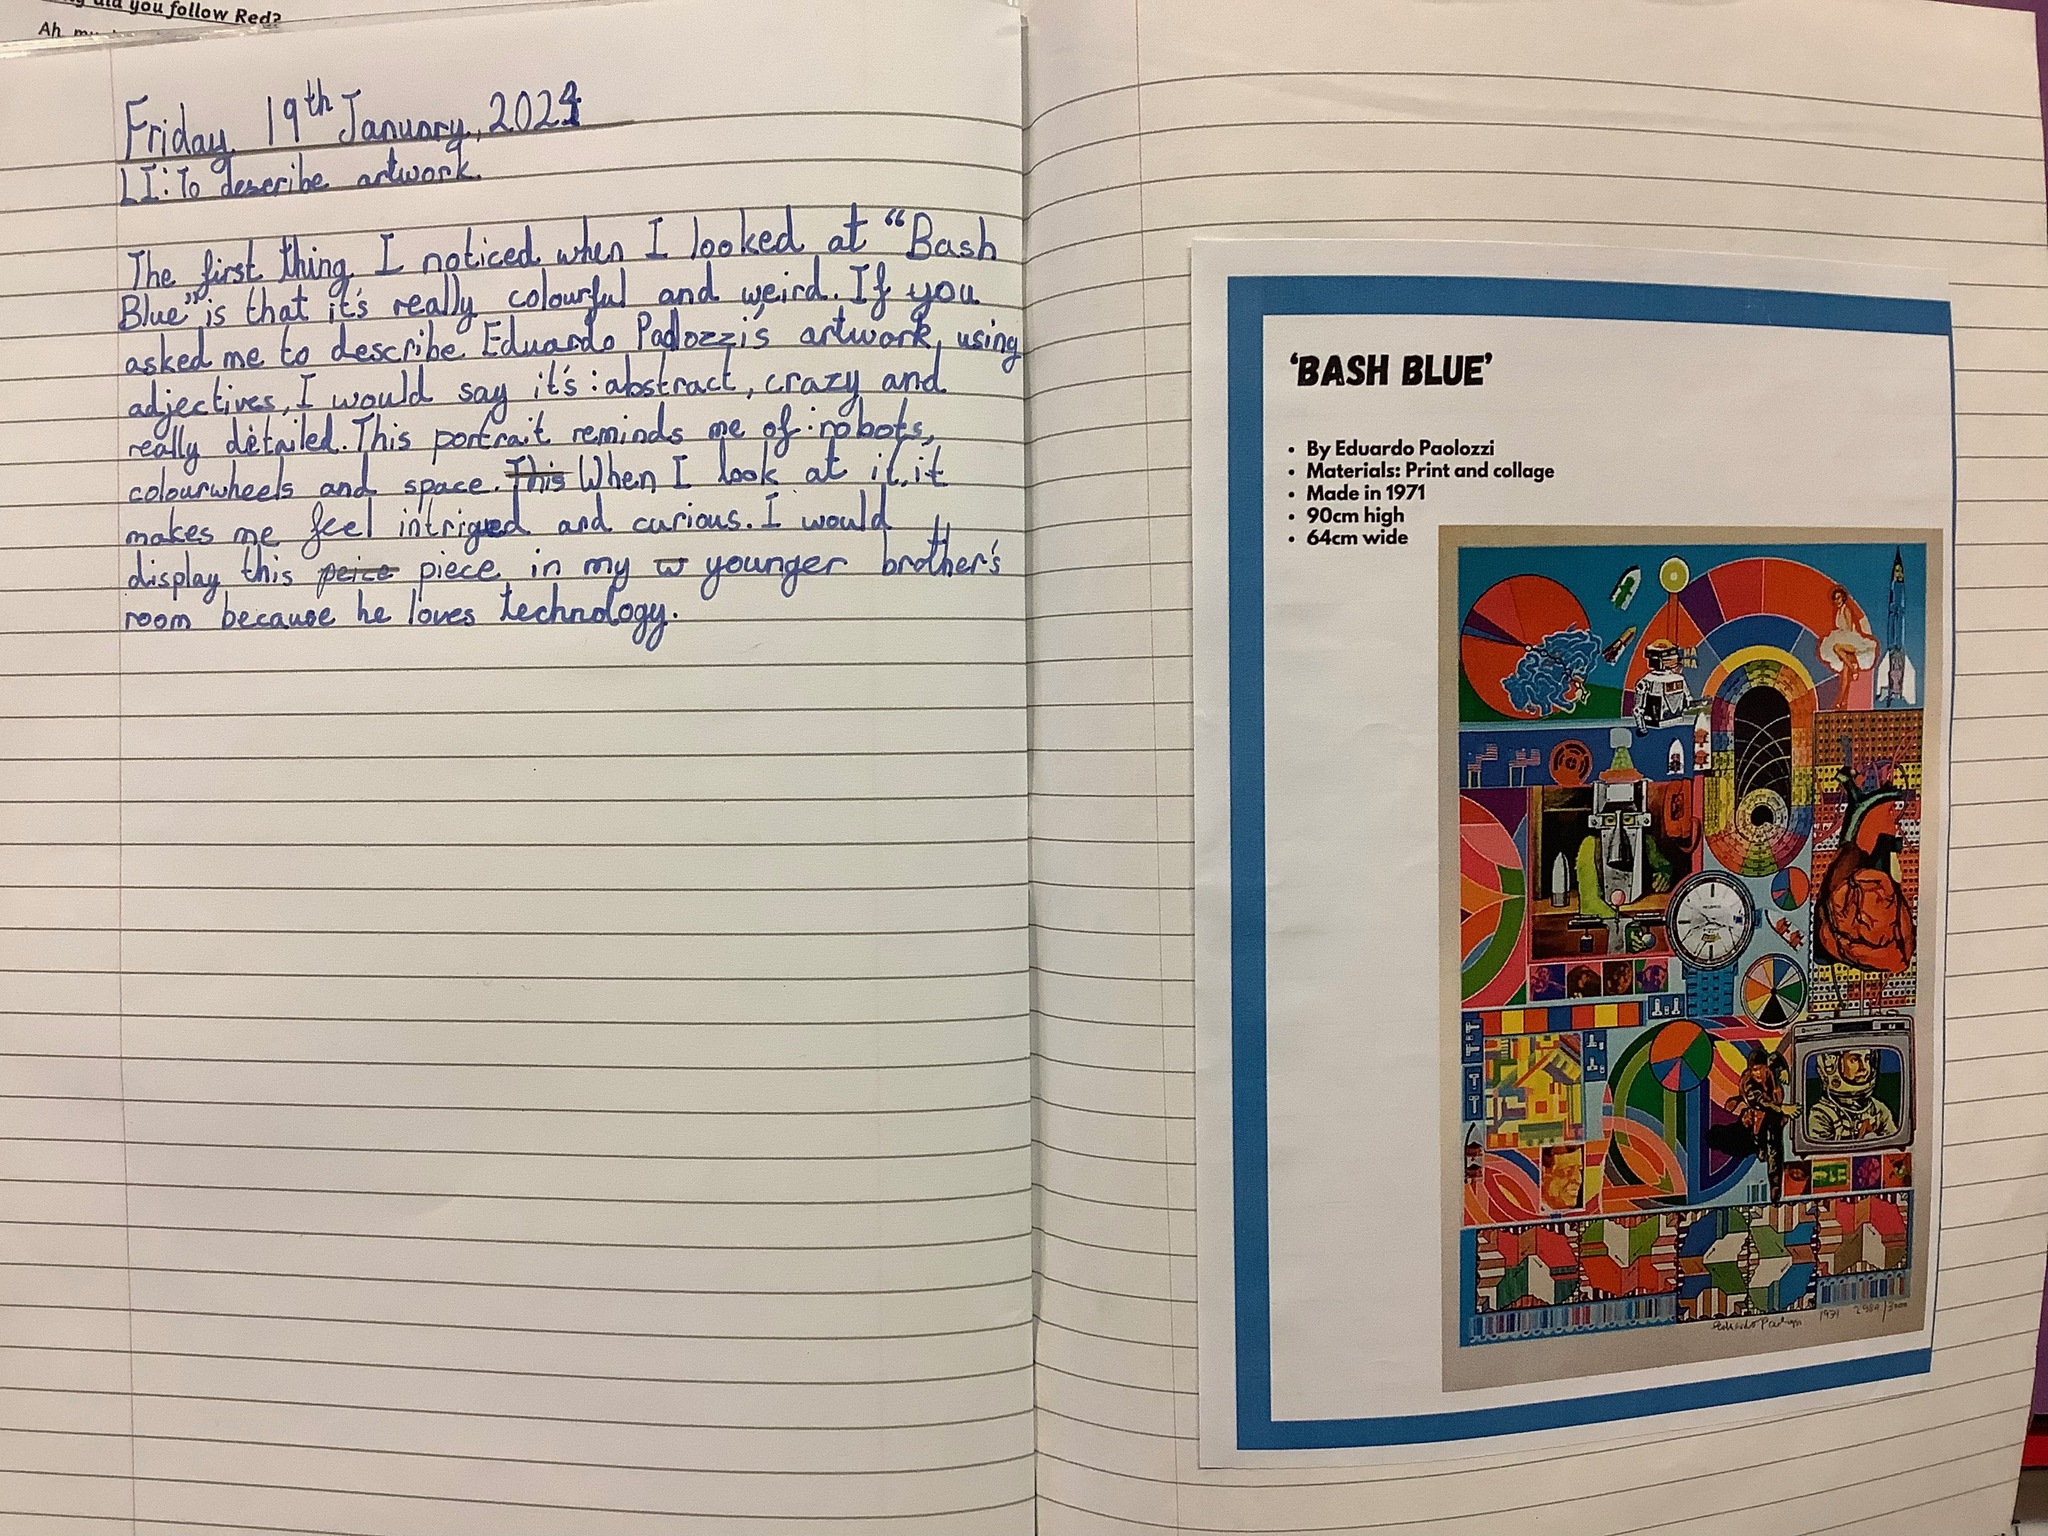 did you follow Red?
Ah
Friday 19th January, 2024
LI: To describe artwork.
The first thing I noticed when I looked at "Bash
Blue" is that it's really colourful and weird. If you
asked me to describe Eduardo Paolozzi's artwork, using
adjectives, I would say it's: abstract, crazy and
really detailed. This portrait reminds me of: robots,
colourwheels and space. This When I look at it, it
makes me feel intriged and curious. I would
display this peice piece in my w younger brother's
room because he loves technology.
'BASH BLUE'
• By Eduardo Paolozzi
• Materials: Print and collage
• Made in 1971
• 90cm high
• 64cm wide
HA
HA
Eduardo Paolozzi 1971 /3000